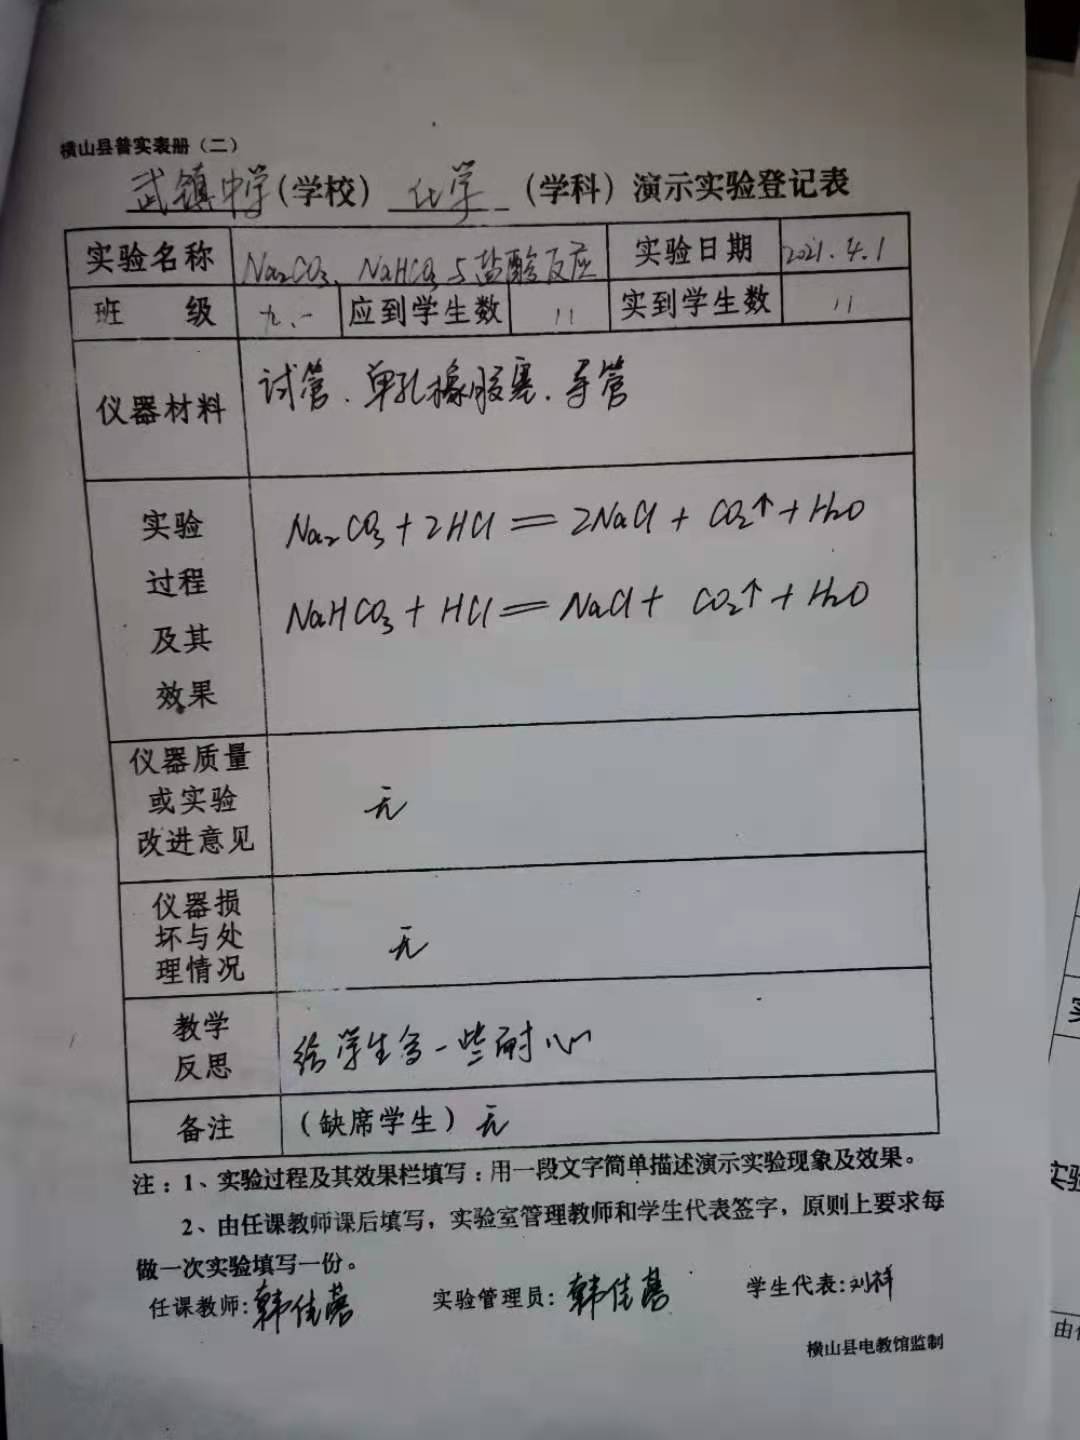 横山县普实表册（二）
武镇中学（学校） 化学 （学科）演示实验登记表
实验名称 Na₂CO₃、NaHCO₃与盐酸反应 实验日期 2021.4.1
班 级 九.一 应到学生数 11 实到学生数 11
仪器材料 试管.单孔橡胶塞.导管
实验
过程
及其
效果
Na₂CO₃+2HCl=2NaCl+CO₂↑+H₂O
NaHCO₃+HCl=NaCl+CO₂↑+H₂O
仪器质量
或实验
改进意见
无
仪器损
坏与处
理情况
无
教学
反思
给学生多一些耐心
备注 （缺席学生）无
注：1、实验过程及其效果栏填写：用一段文字简单描述演示实验现象及效果。
2、由任课教师课后填写，实验室管理教师和学生代表签字，原则上要求每
做一次实验填写一份。
任课教师：韩佳 实验管理员：韩佳 学生代表：刘祥
横山县电教馆监制
实验
由